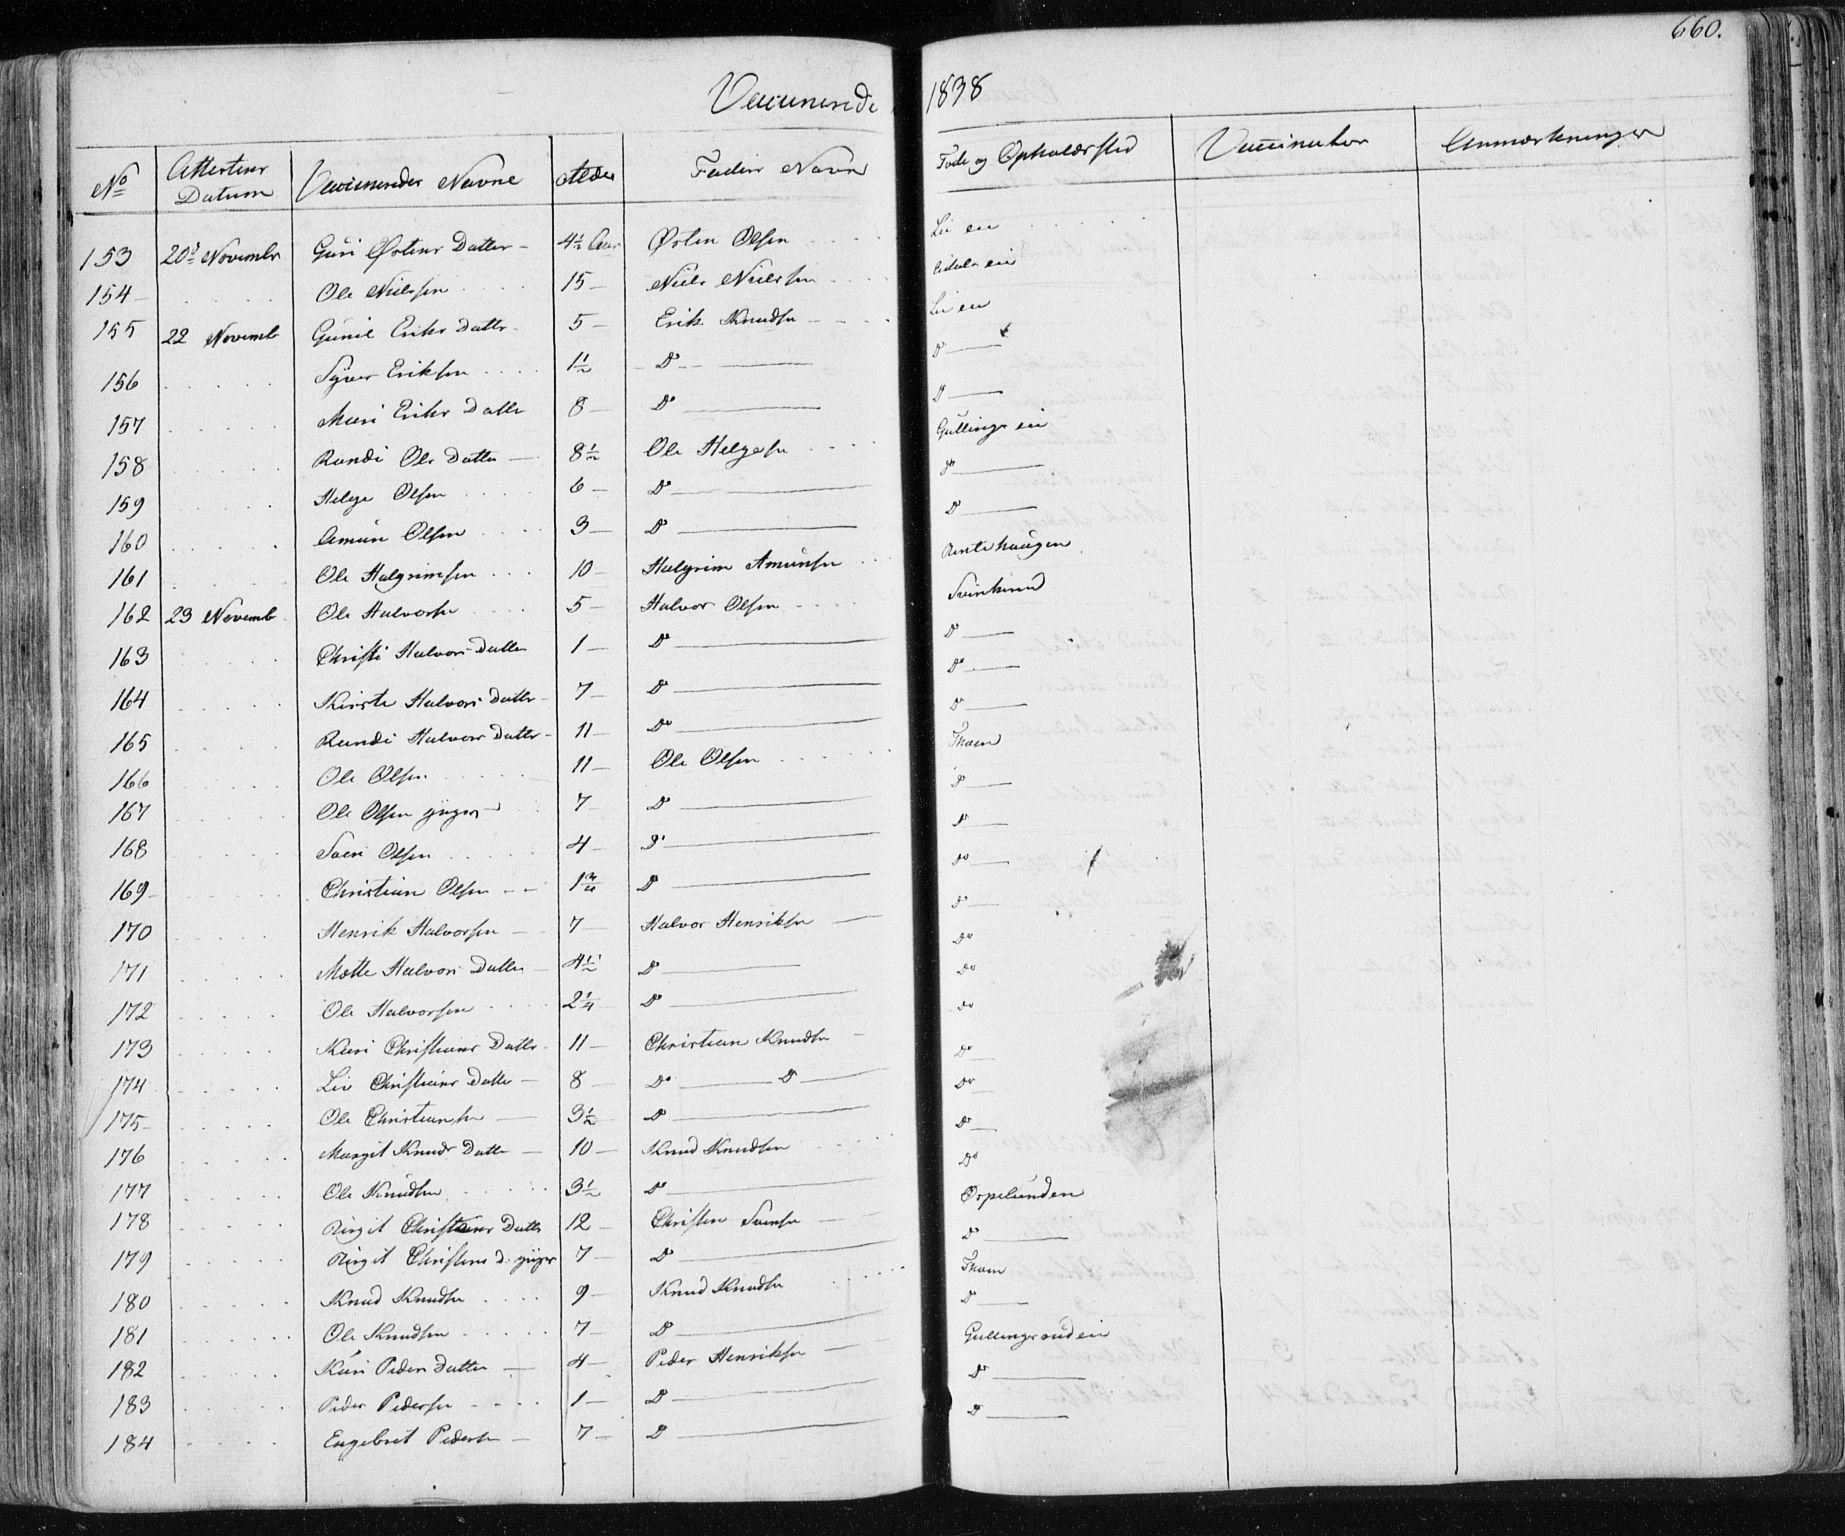 660.
Vaccinerede 1838
No Attesters Datum Vaccineredes Navne Alder Fader Navn Føde og Opholdssted Vaccinator Anmærkninger
153 20de Novembr Guri Østens Datter 4½ Aar Østen Olsen Li eie
154 Ole Nielsen 15 Niels Nielsen eie
155 22 Novemb Gunil Eriks Datter 5 Erik Knudsen Li eie
156 Syver Eriksen 1½ Do Do
157 Mari Eriks Datter 8 Do Do
158 Randi Ols Datter 8½ Ole Helgesen Gullings eie
159 Helge Olsen 6 Do Do
160 Amun Olsen 3 Do Do
161 Ole Halgrimsen 10 Halgrim Amunsen Rentehaugen
162 23 Novemb Ole Halvorsen 5 Halvor Olsen
163 Christi Halvors Datter 1 Do Do
164 Kirste Halvors Datter 7 Do Do
165 Randi Halvors Datter 11 Do Do
166 Ole Olsen 11 Ole Olsen Thoen
167 Ole Olsen yngre 7 Do Do
168 Sven Olsen 4 Do Do
169 Christian Olsen 1¾ Do Do
170 Henrik Halvorsen 7 Halvor Henriksen Do
171 Mette Halvors Datter 4½ Do Do
172 Ole Halvorsen 2¼ Do Do
173 Kari Christians Datter 11 Christian Knudsen Do
174 Liv Christians Datter 8 Do Do Do
175 Ole Christiansen 3½ Do Do
176 Margit Knuds Datter 10 Knud Knudsen Do
177 Ole Knudsen 3½ Do Do
178 Birgit Christens Datter 12 Christen Svensen Orpelunden
179 Birgit Christens D. yngre 7 Do Do
180 Knud Knudsen 9 Knud Knudsen Thoen
181 Ole Knudsen 7 Do Do
182 Kari Peders Datter 4 Peder Henriksen Gullingsrud eie
183 Peder Pedersen 1 Do Do
184 Engebret Pedersen 7 Do Do